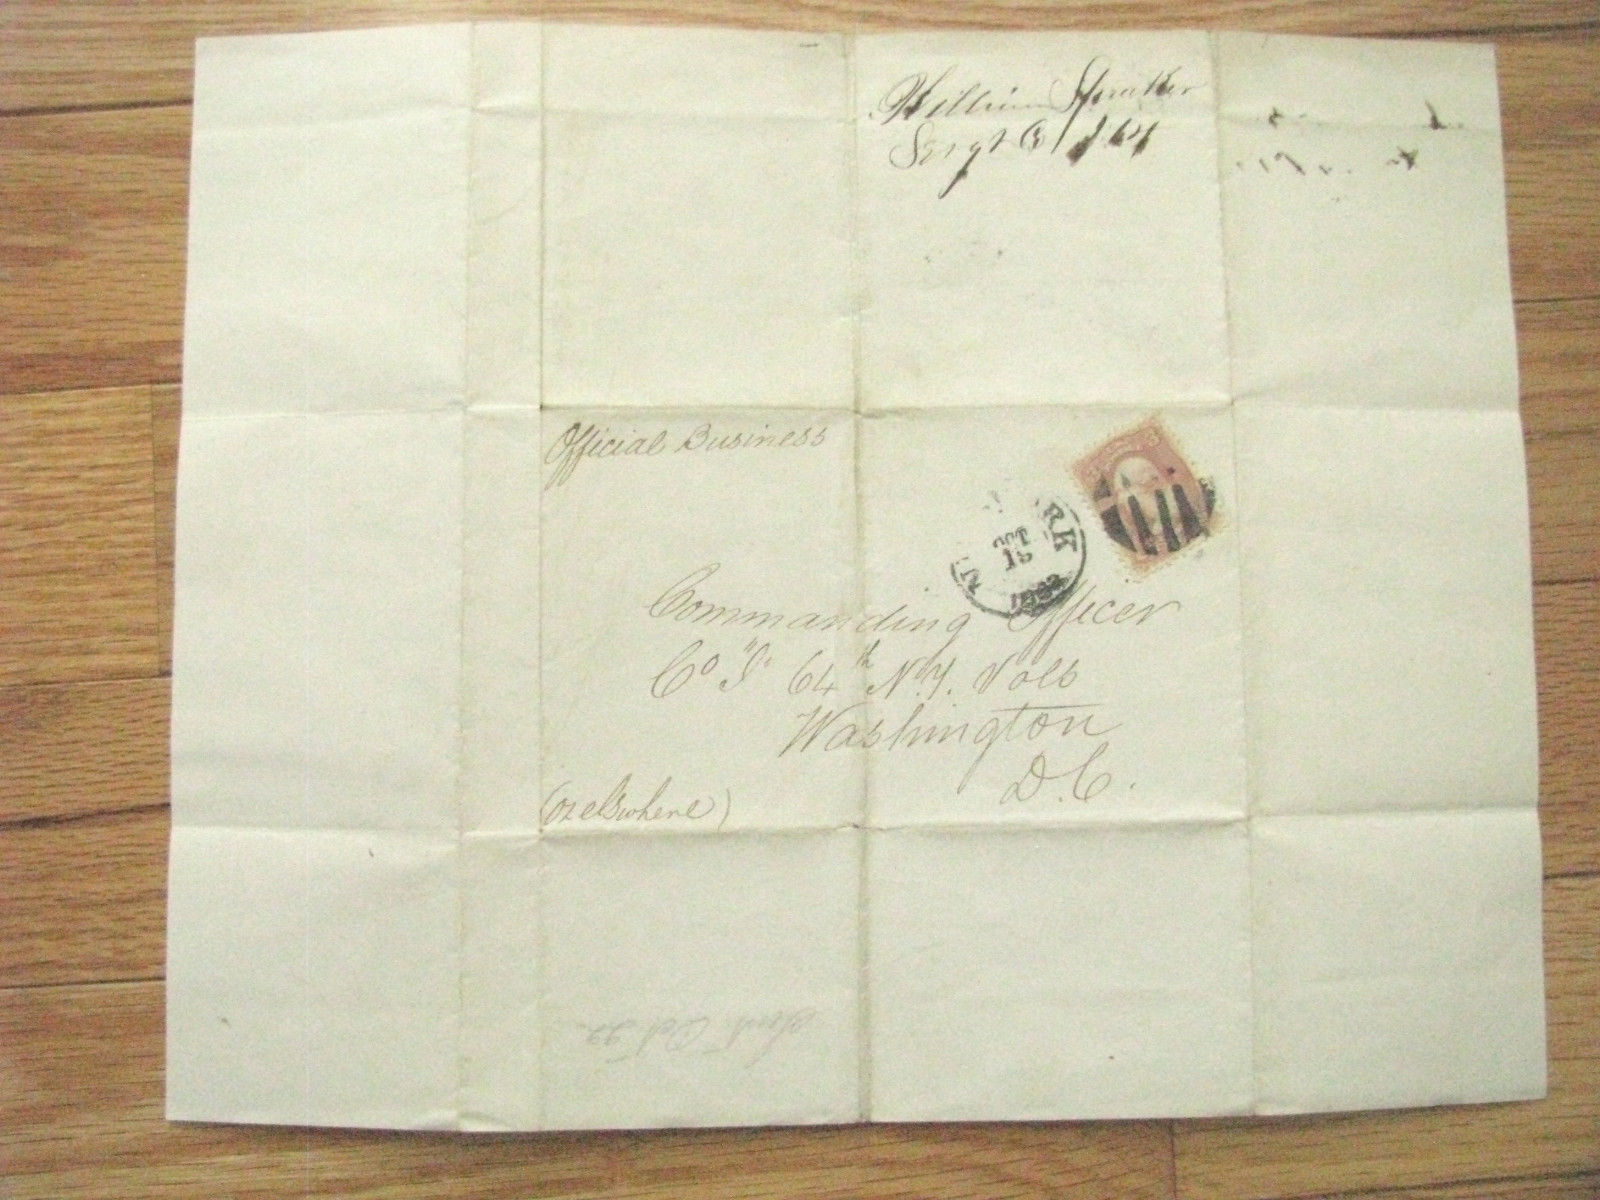 William
Sergt
Official Business
N YORK
OCT
18
1862
Commanding Officer
Co "I" 64th N.Y. Vols
Washington
D.C.
(or elsewhere)
Oct 22